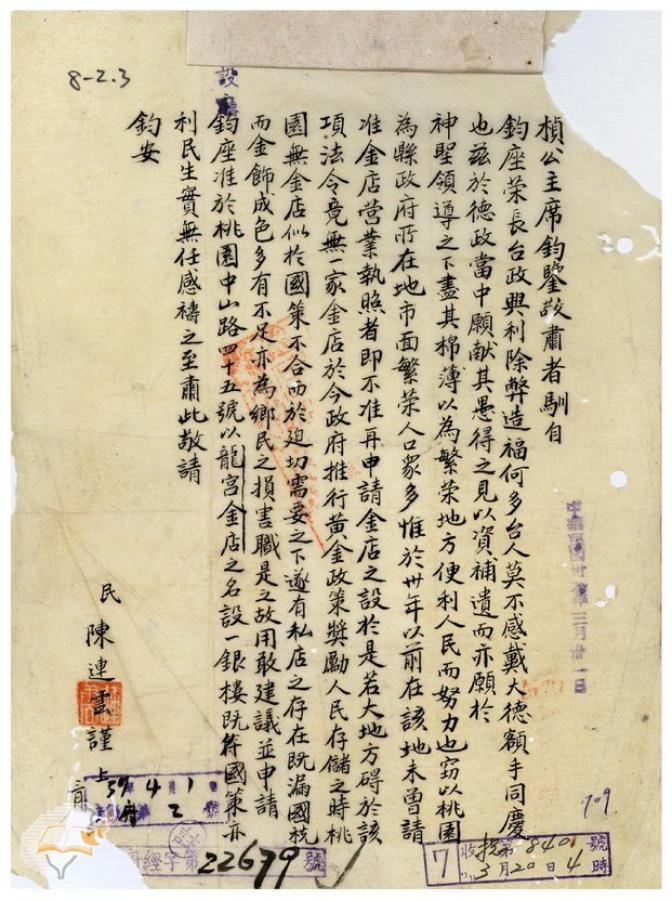 8-2.3
設廳
楨公主席鈞鑒敬肅者馴自
鈞座荣長台政興利除弊造福何多台人莫不感戴大德額手同慶
也茲於德政當中願献其愚得之見以資補遺而亦願於
神聖領導之下盡其棉薄以為繁荣地方便利人民而努力也窃以桃園
為縣政府所在地市面繁荣人口衆多惟於卅年以前在該地未曾請
准金店營業執照者即不准再申請金店之設於是若大地方碍於該
項法令竟無一家金店於今政府推行黃金政策獎勵人民存儲之時桃
園無金店似於國策不合而於迫切需要之下遂有私店之存在既漏國稅
而金飾成色多有不足亦為鄉民之損害職是之故用敢建議並申請
鈞座准於桃園中山路四十五號以龍宮金店之名設一銀樓既符國策亦
利民生實無任感禱之至肅此敬請
鈞安
民 陳連雲謹上
中華民國卅九年三月廿一日
39 4 1
府 2 號
經字第22679號
709.
7 收 第8401號
3月20日4時